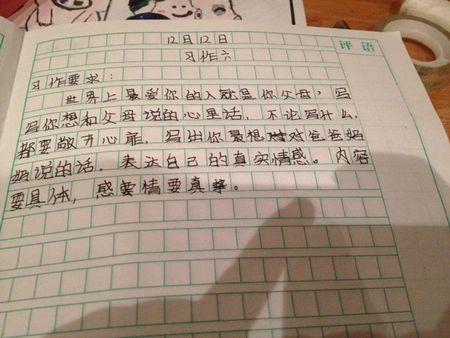 12月12日
评语
习作六
习作要求：
世界上最爱你的人就是你父母，写
写你想和父母说的心里话，不论写什么，
都要敞开心扉，写出你最想对对爸爸妈
妈说的话，表达自己的真实情感。内容
要具体，感要情要真。